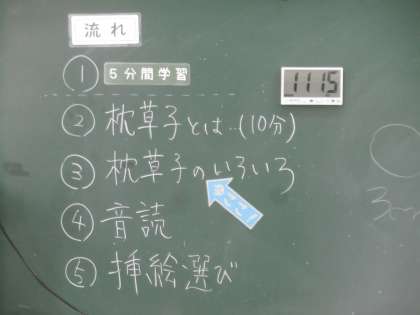 流れ
① 5分間学習
11:15
② 枕草子とは‥(10分)
③ 枕草子のいろいろ
④ 音読
⑤ 挿絵選び